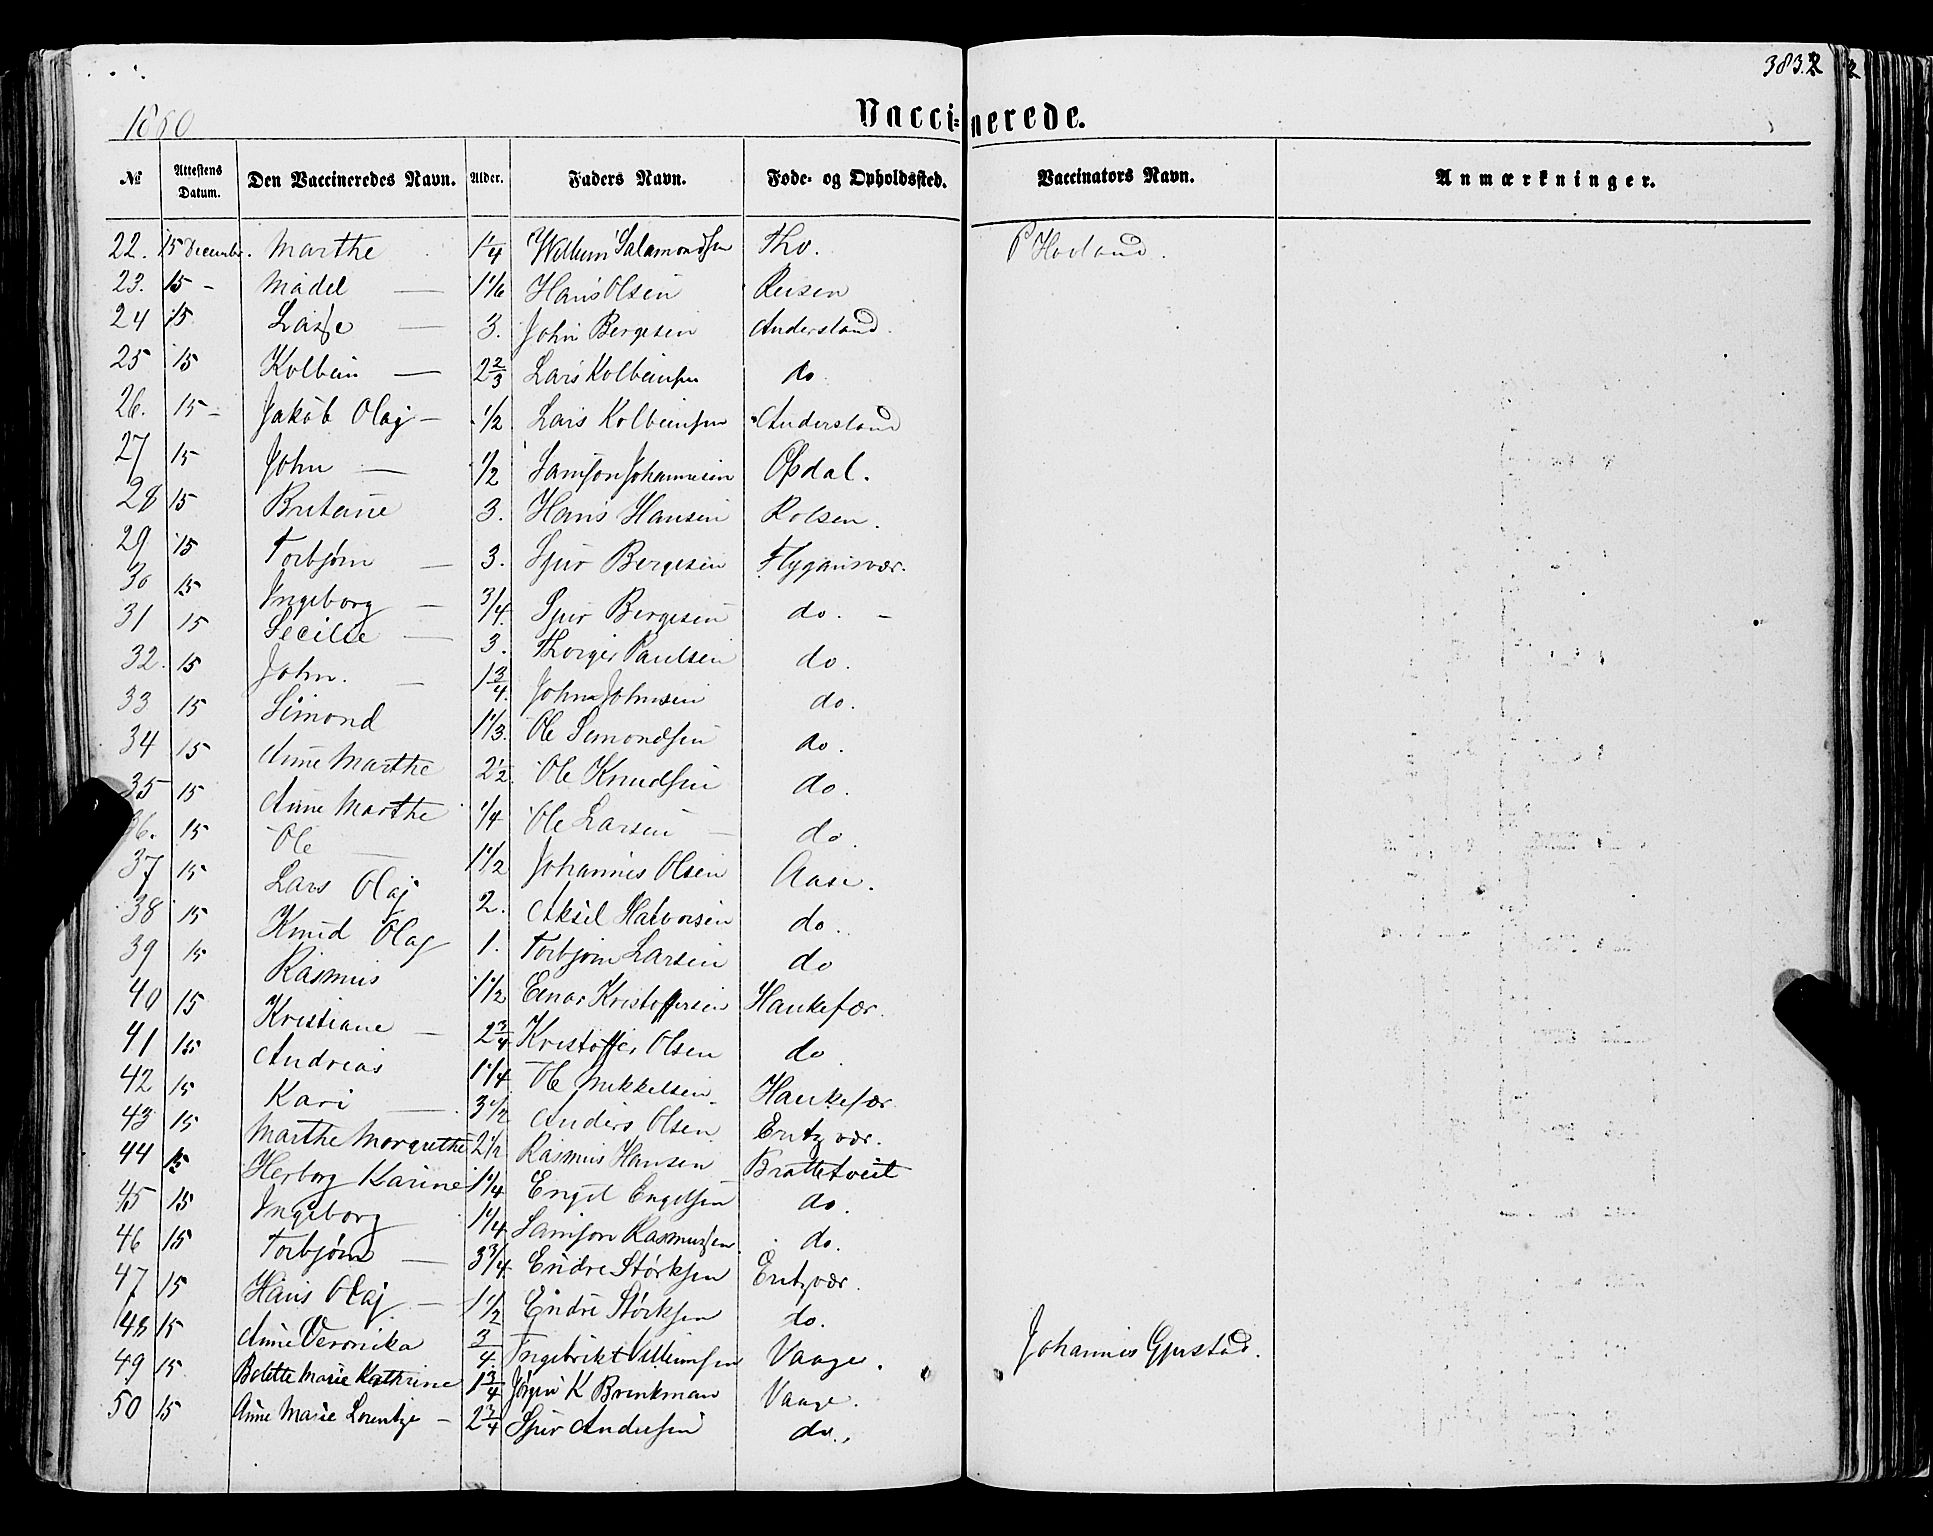 383.2
1860
Vaccinerede.
№ Attestens Datum. Den Vaccineredes Navn. Alder. Faders Navn. Føde- og Opholdssted. Vaccinators Navn. Anmærkninger.
22. 15 December. Marthe 1/4 Willum Salamonsen Tho. P Hovland.
23. 15 - Madel — 1 1/6 Hans Olsen Reisen
24 15 Lasse — 3. John Bergesen Andersland.
25 15 Kolbein — 2 2/3 Lars Kolbeinsen do
26. 15 - Jakob Olaj — 1/2 Lars Kolbeinsen Andersland
27 15 John — 1/2 Samson Johannesen Opdal.
28 15 Britane 3. Hans Hansen Rolsen.
29 15 Torbjørn — 3. Sjur Bergesen Flygansvær.
30 15 Ingeborg — 3/4. Sjur Bergesen do. -
31 15 Secilie — 3. Thorger Paulsen do.
32. 15 John. — 1 3/4. John Johnsen do.
33 15 Simond 1 1/3. Ole Simondsen do.
34 15 Anne Marthe 2 1/2. Ole Knudsen do.
35 15 Anne Marthe 1/4 Ole Larsen — do.
36. 15 Ole — 1 1/2 Johannes Olsen Aase.
37 15 Lars Olaj 2. Aksel Halvorsen do.
38 15 Knud Olaj 1. Torbjørn Larsen do
39 15 Rasmus 1 1/2 Einar Kristoffersen Haukefær.
40 15 Kristiane — 2 3/4 Kristoffer Olsen do.
41 15 Andreas 1 1/4 Ole Mikkelsen Haukefær
42 15 Kari — 3 1/2 Anders Olsen Eritzvær.
43 15 Marthe Margrethe 2 1/2 Rasmus Hansen Brattetveit
44 15 Herborg Karine 1 1/4 Engel Engelsen do.
45 15 Ingeborg 1 1/4 Samson Rasmussen do.
46 15 Torbjørn — 3 3/4 Endre Størksen Eritzvær.
47 15 Hans Olaj — 1 1/2 Endre Størksen do.
48 15 Anne Veronika 3/4. Ingebrikt Villumsen Vaage. Johannes Gjerstad.
49 15 Bolette Marie Kathrine 1 3/4 Jørgen K Brinkman Vaage.
50 15 Anne Marie Lorentze — 2 3/4 Sjur Andersen do.